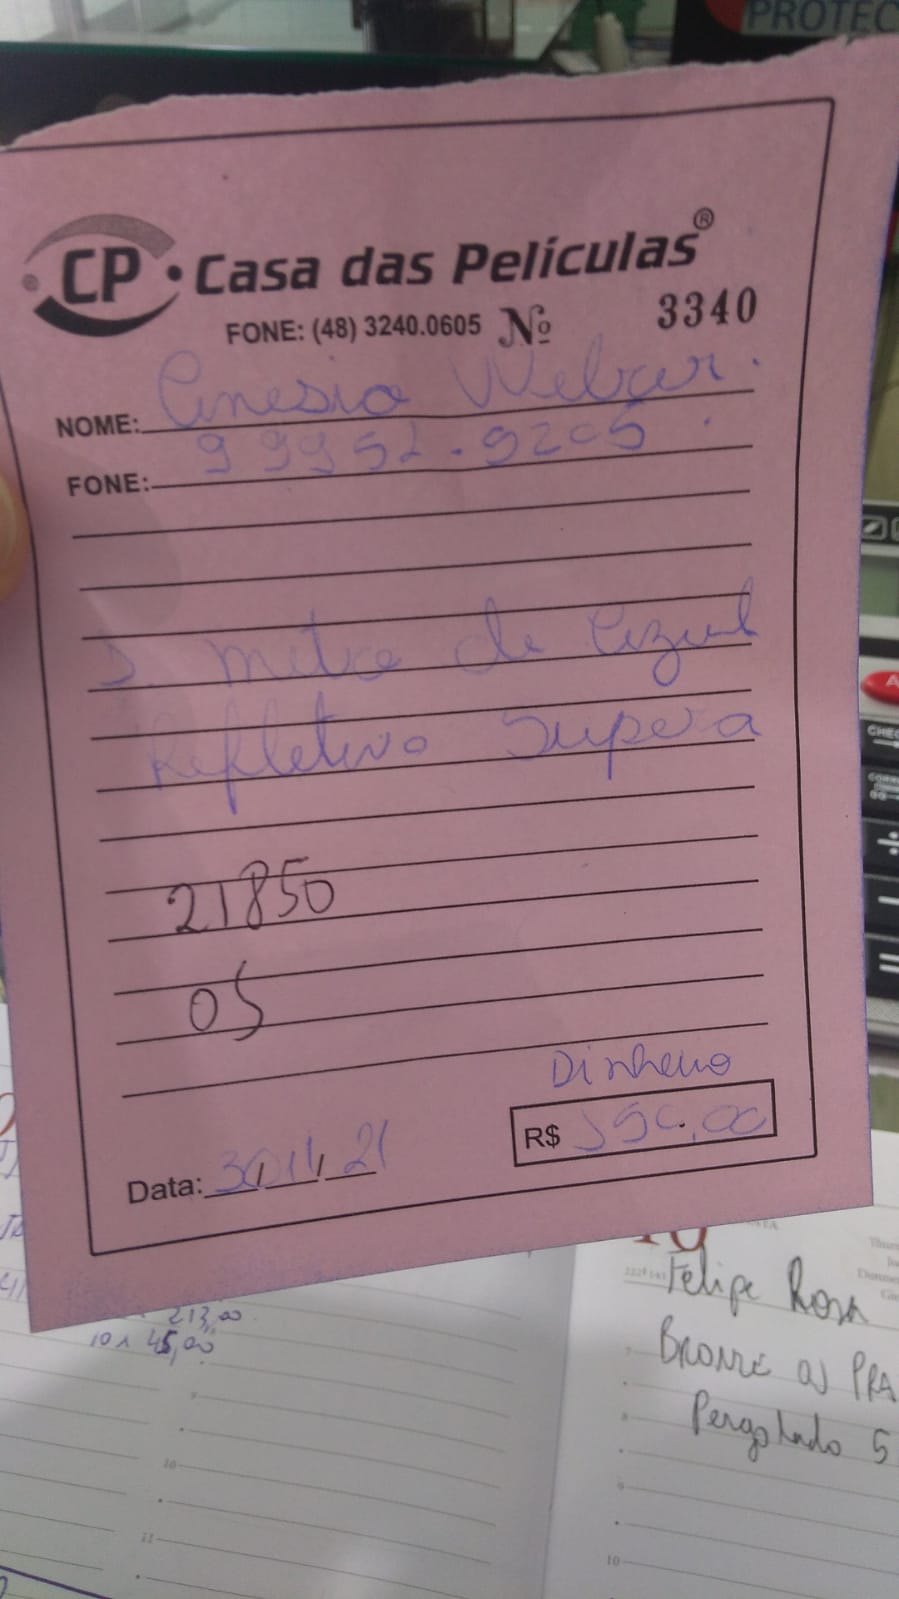 PROTEC
CP Casa das Películas®
FONE: (48) 3240.0605 Nº 3340
NOME: Anesio Weber.
FONE: 99952-9205
metro de Azul
Refletivo Supera
21850
05
Dinheiro
R$
Data: 30/11/21
213,00
10 x 45,00
Felipe Rosa
BRONZE OJ PRA
Pergolado 5
10
11
10